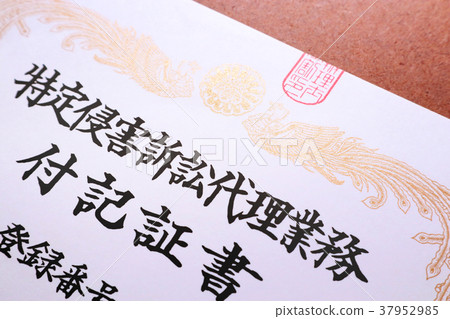 特定侵害訴訟代理業務
付記証書
登録番号
37952985